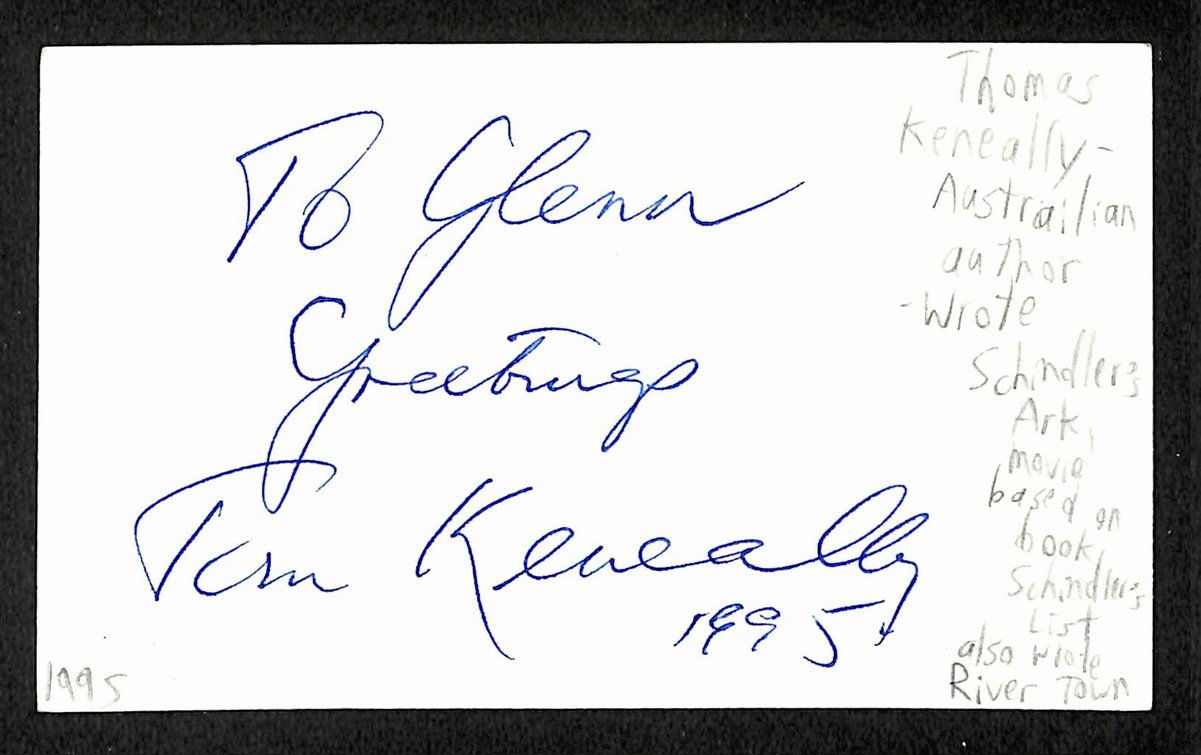 To Glenn
Greetings
Tom Keneally
1995
Thomas
Keneally-
Austrailian
author
-Wrote
Schindler's
Ark,
movie
based on
book,
Schindler's
List
also wrote
River Town
1995